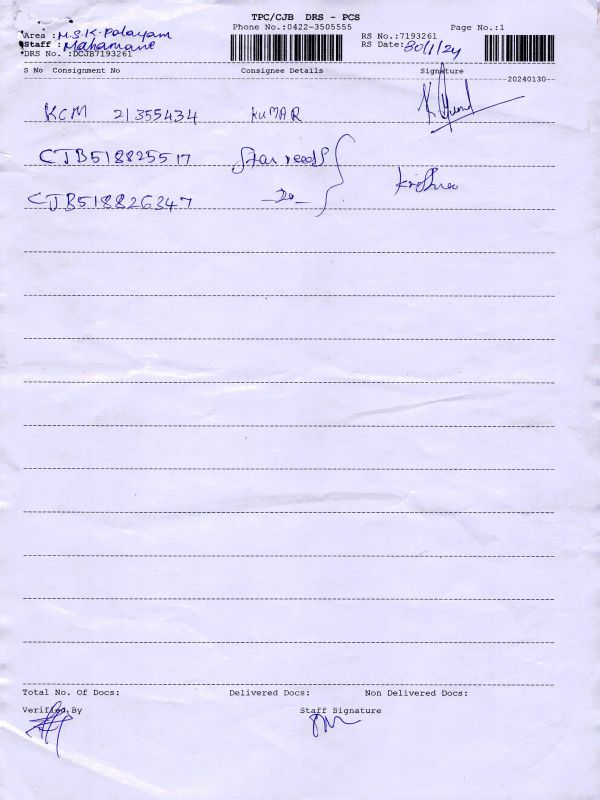 TPC/CJB DRS - PCS
Phone No.:0422-3505555
Page No.:1
Area : M.S.K. Palayam
Staff :
RS No.:7193261
RS Date: 30/1/24
DRS No. :DCJB7193261
S No Consignment No Consignee Details Signature
20240130
KCM 21355434 KUMAR
CJB518825517 Star reeds Krishna
CJB518826347 -Do-
Total No. Of Docs: Delivered Docs: Non Delivered Docs:
Verified By Staff Signature